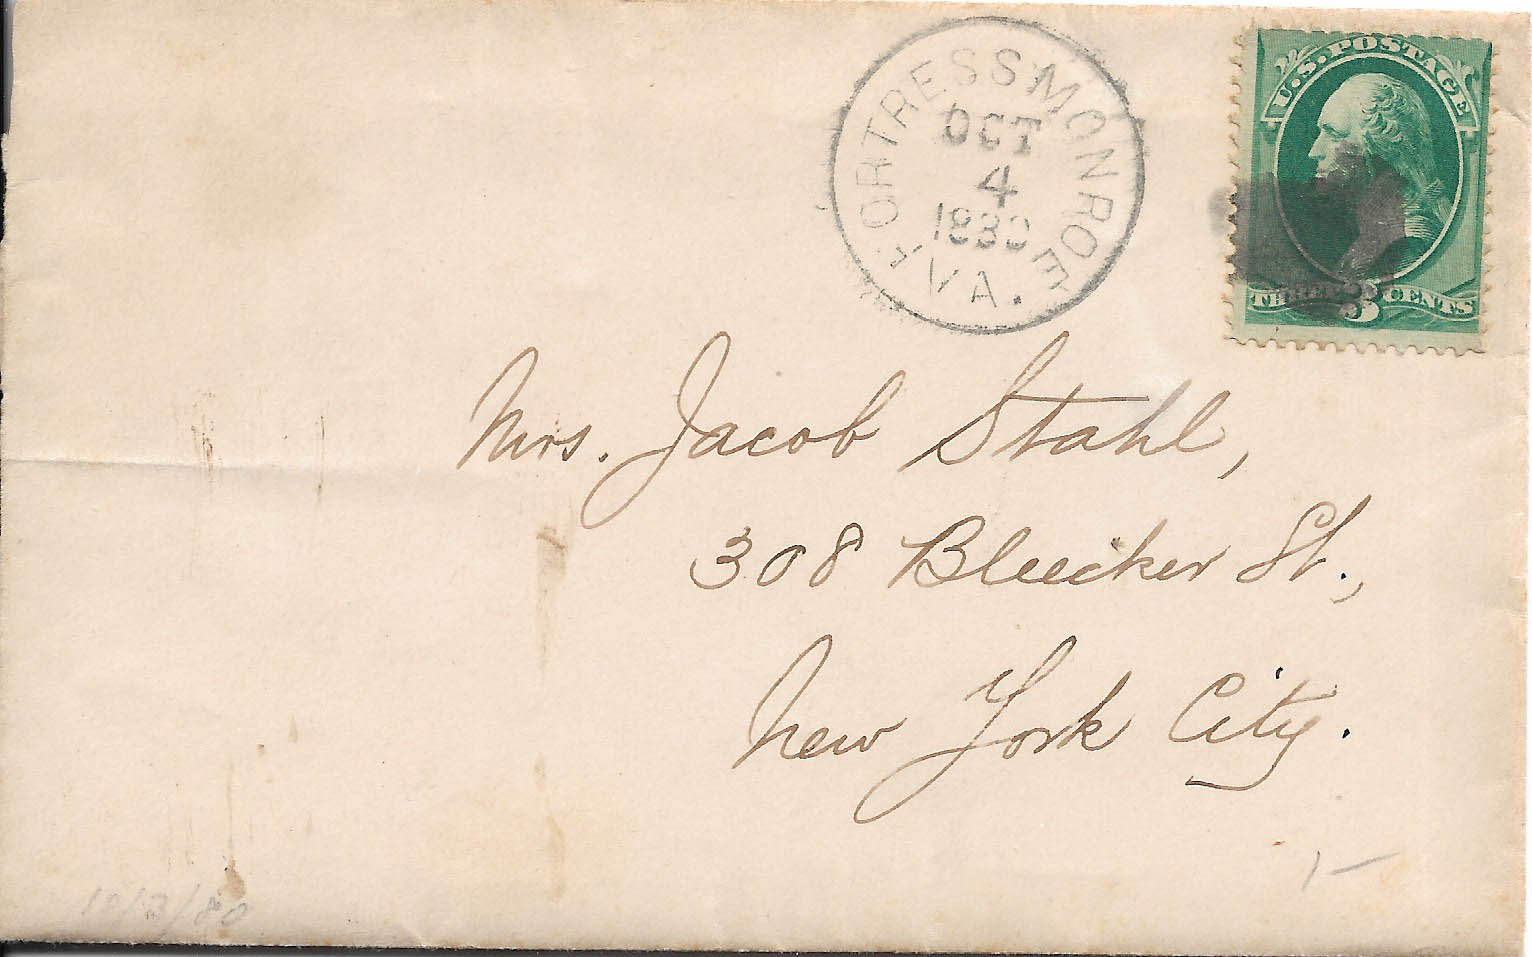 FORTRESS MONROE
OCT
4
1880
VA.
U.S. POSTAGE
THREE 3 CENTS
Mrs. Jacob Stahl,
308 Bleecker St.,
New York City.
10/3/80
1–